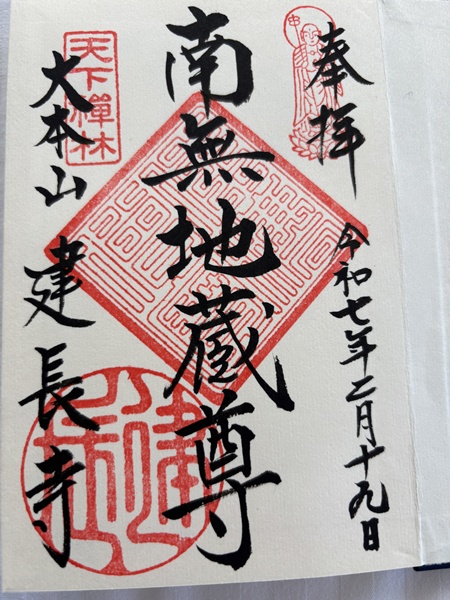 奉拝
令和七年二月十九日
南無地蔵尊
天下禅林
大本山 建長寺